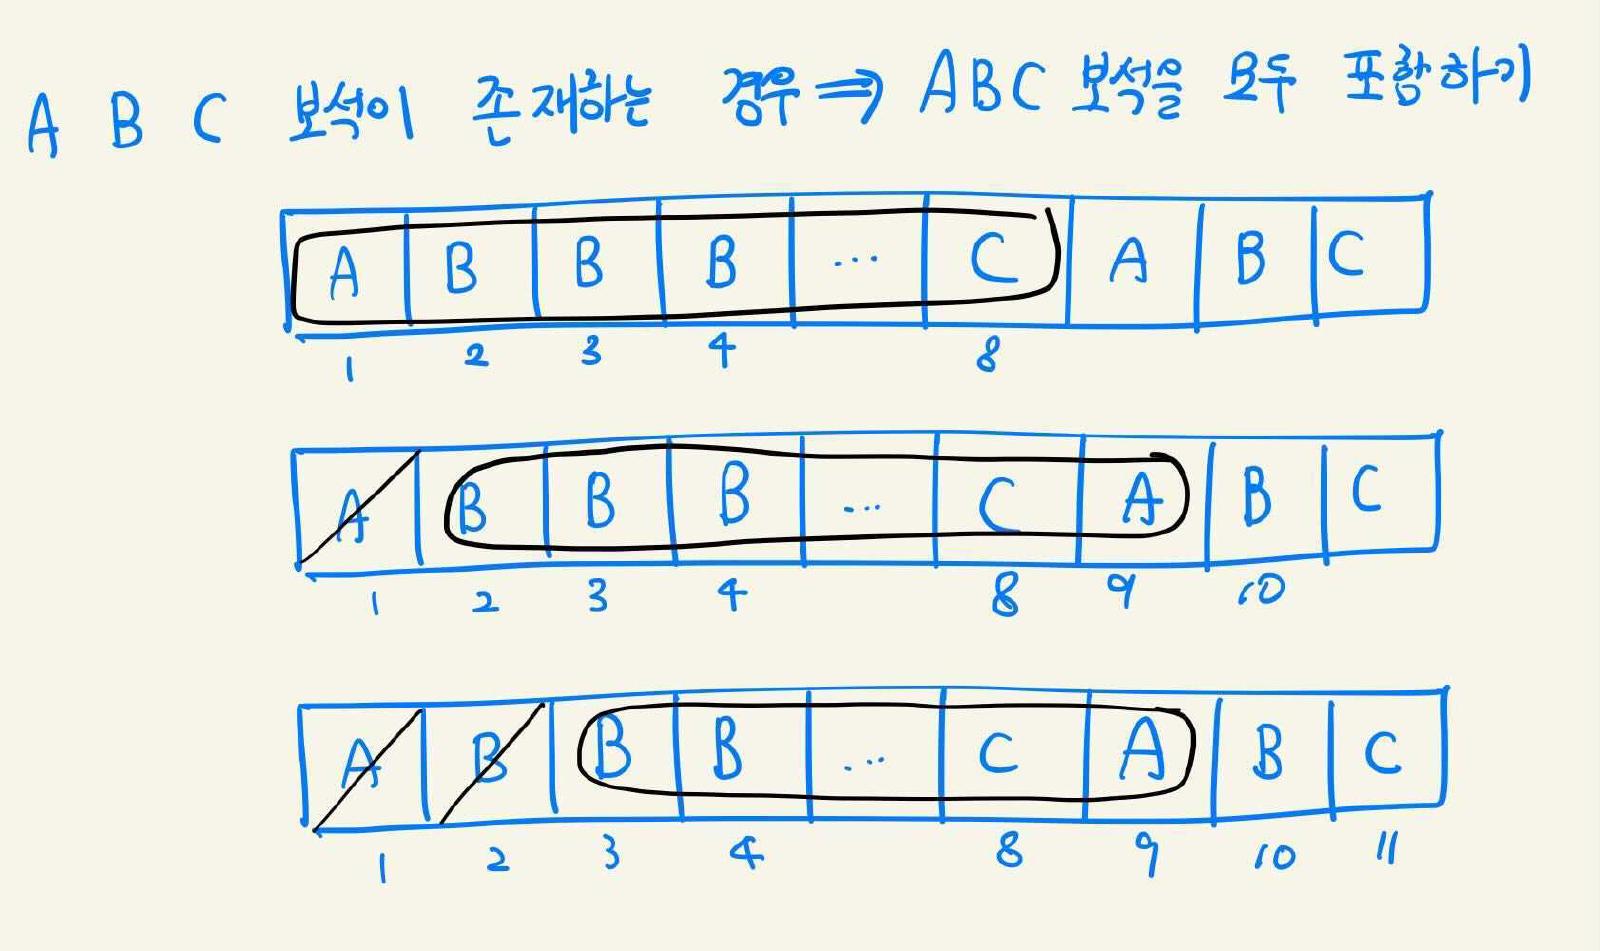 A B C 보석이 존재하는 경우 ⇒ ABC 보석을 모두 포함하기
A B B B ... C A B C
1 2 3 4 8
A B B B ... C A B C
1 2 3 4 8 9 10
A B B B ... C A B C
1 2 3 4 8 9 10 11